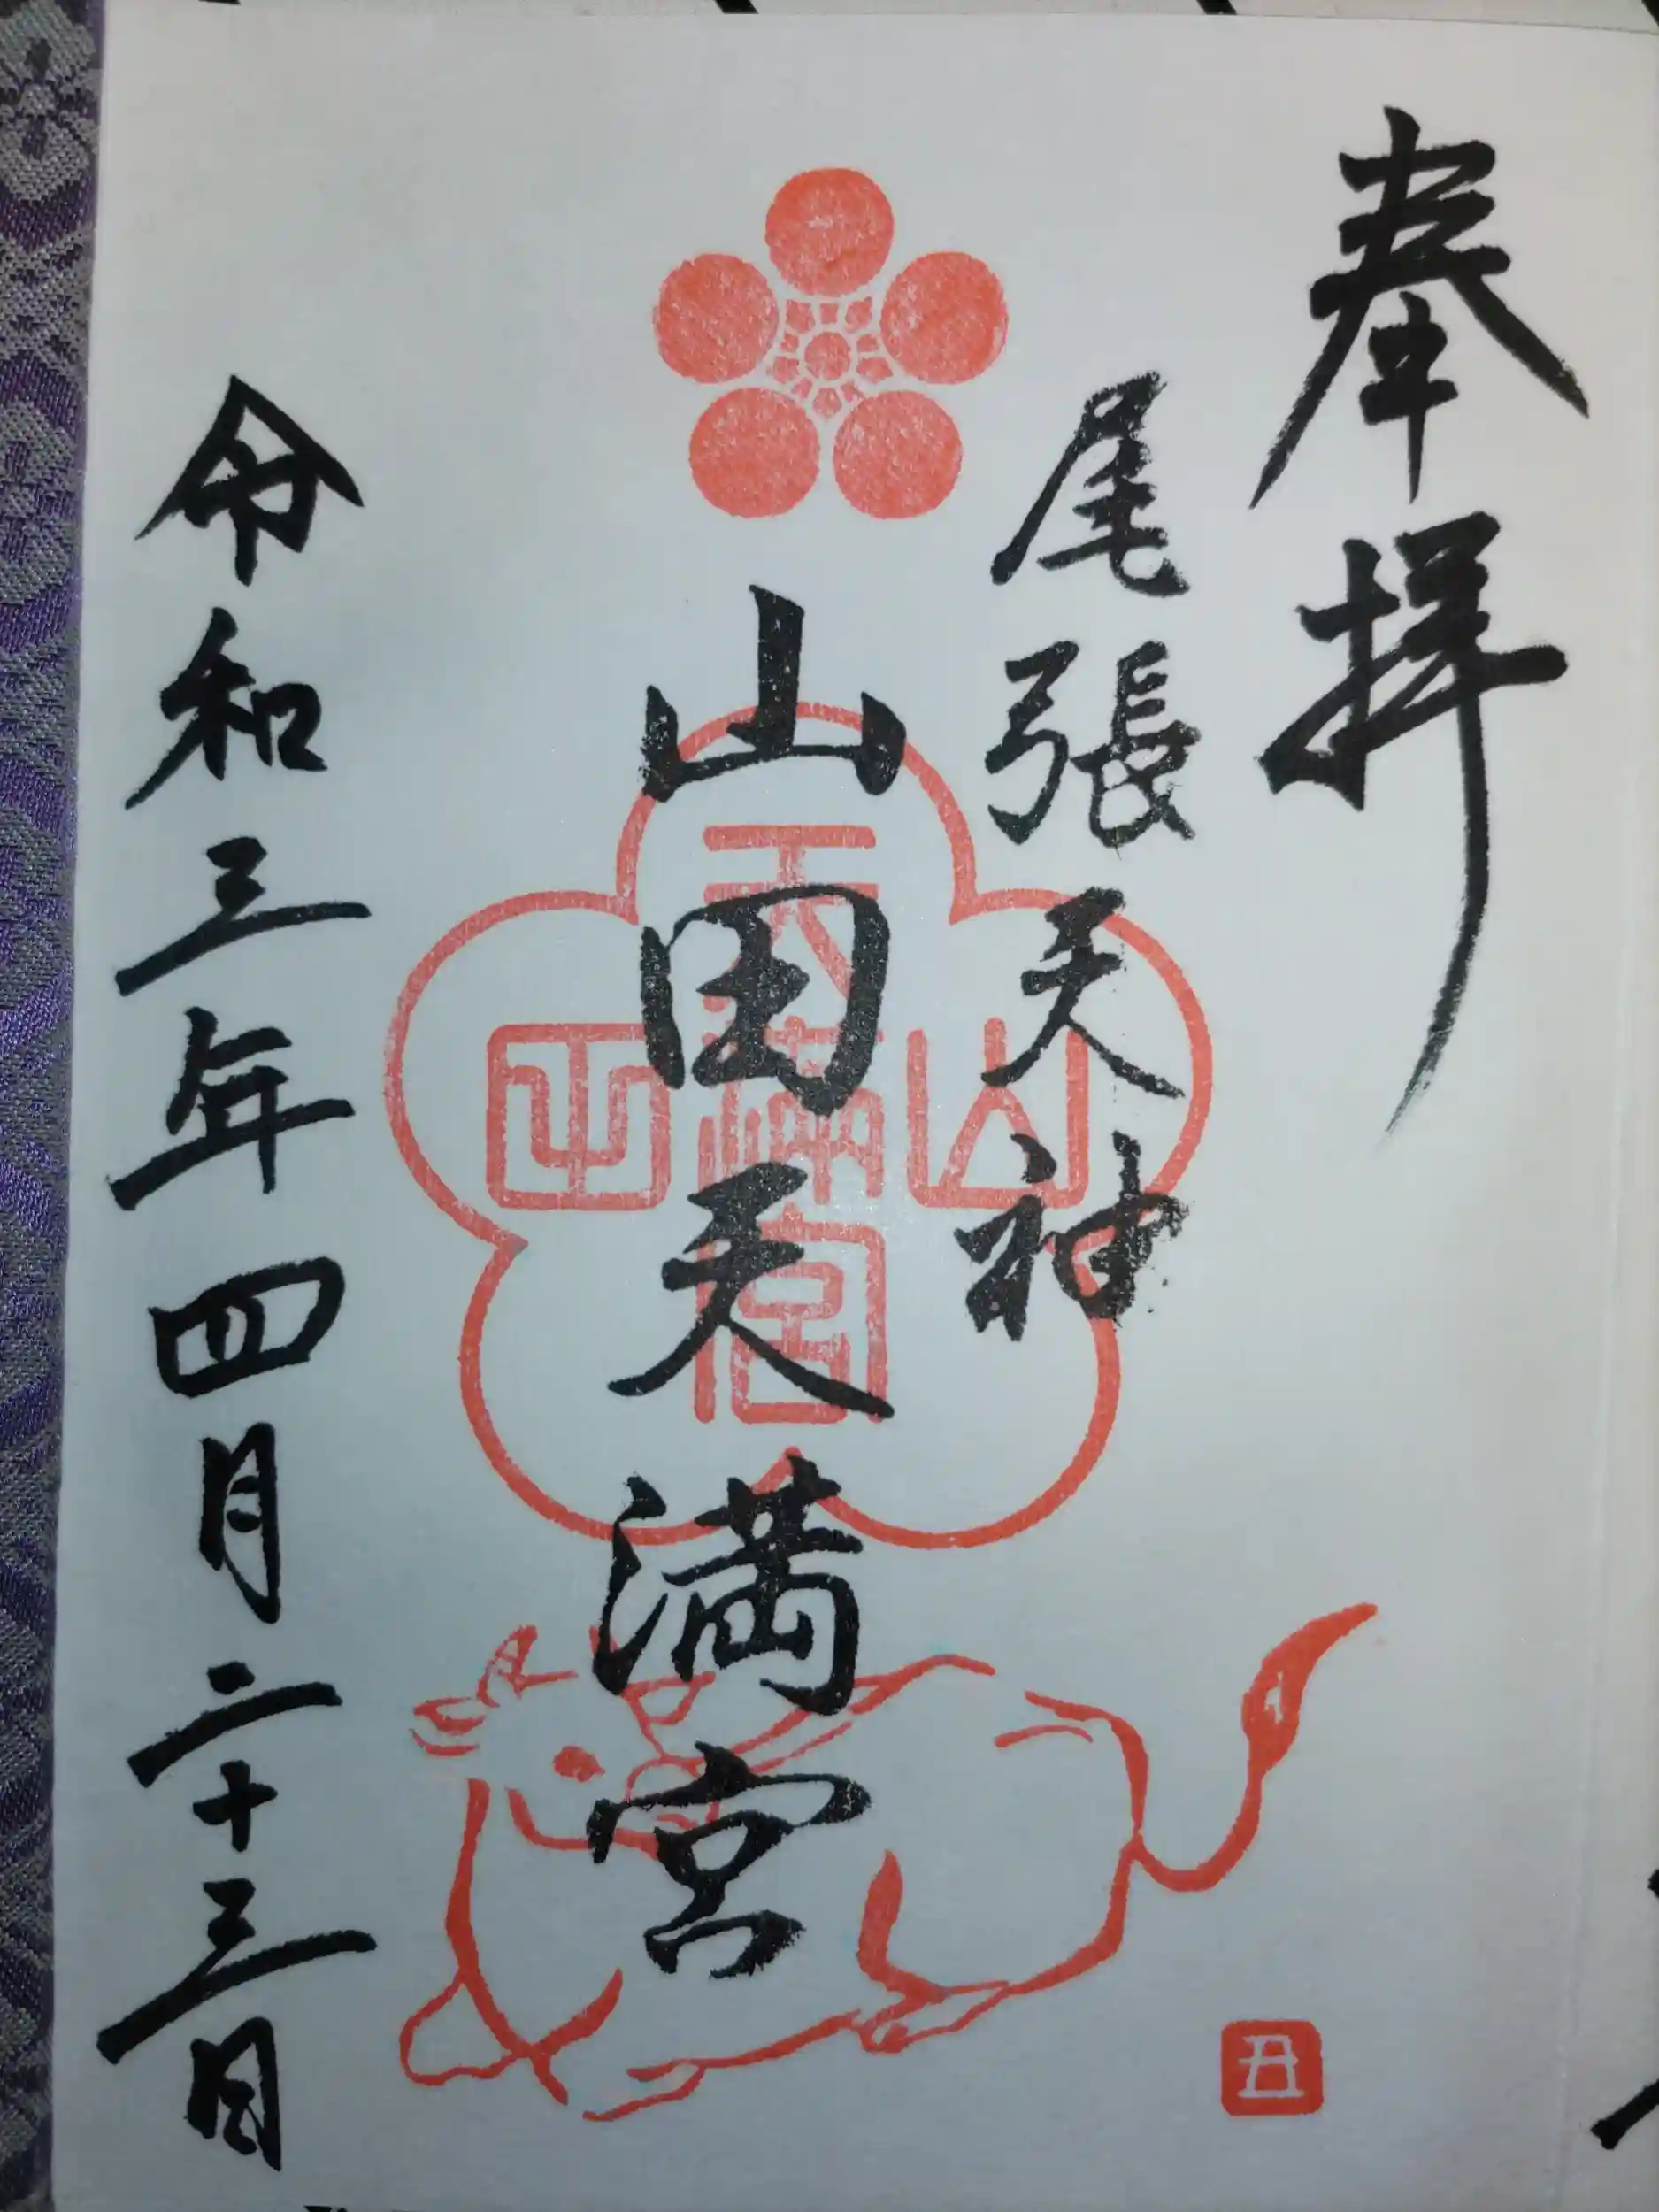 奉拝
尾張天神
山田天満宮
山田天満宮
令和三年四月二十三日
丑